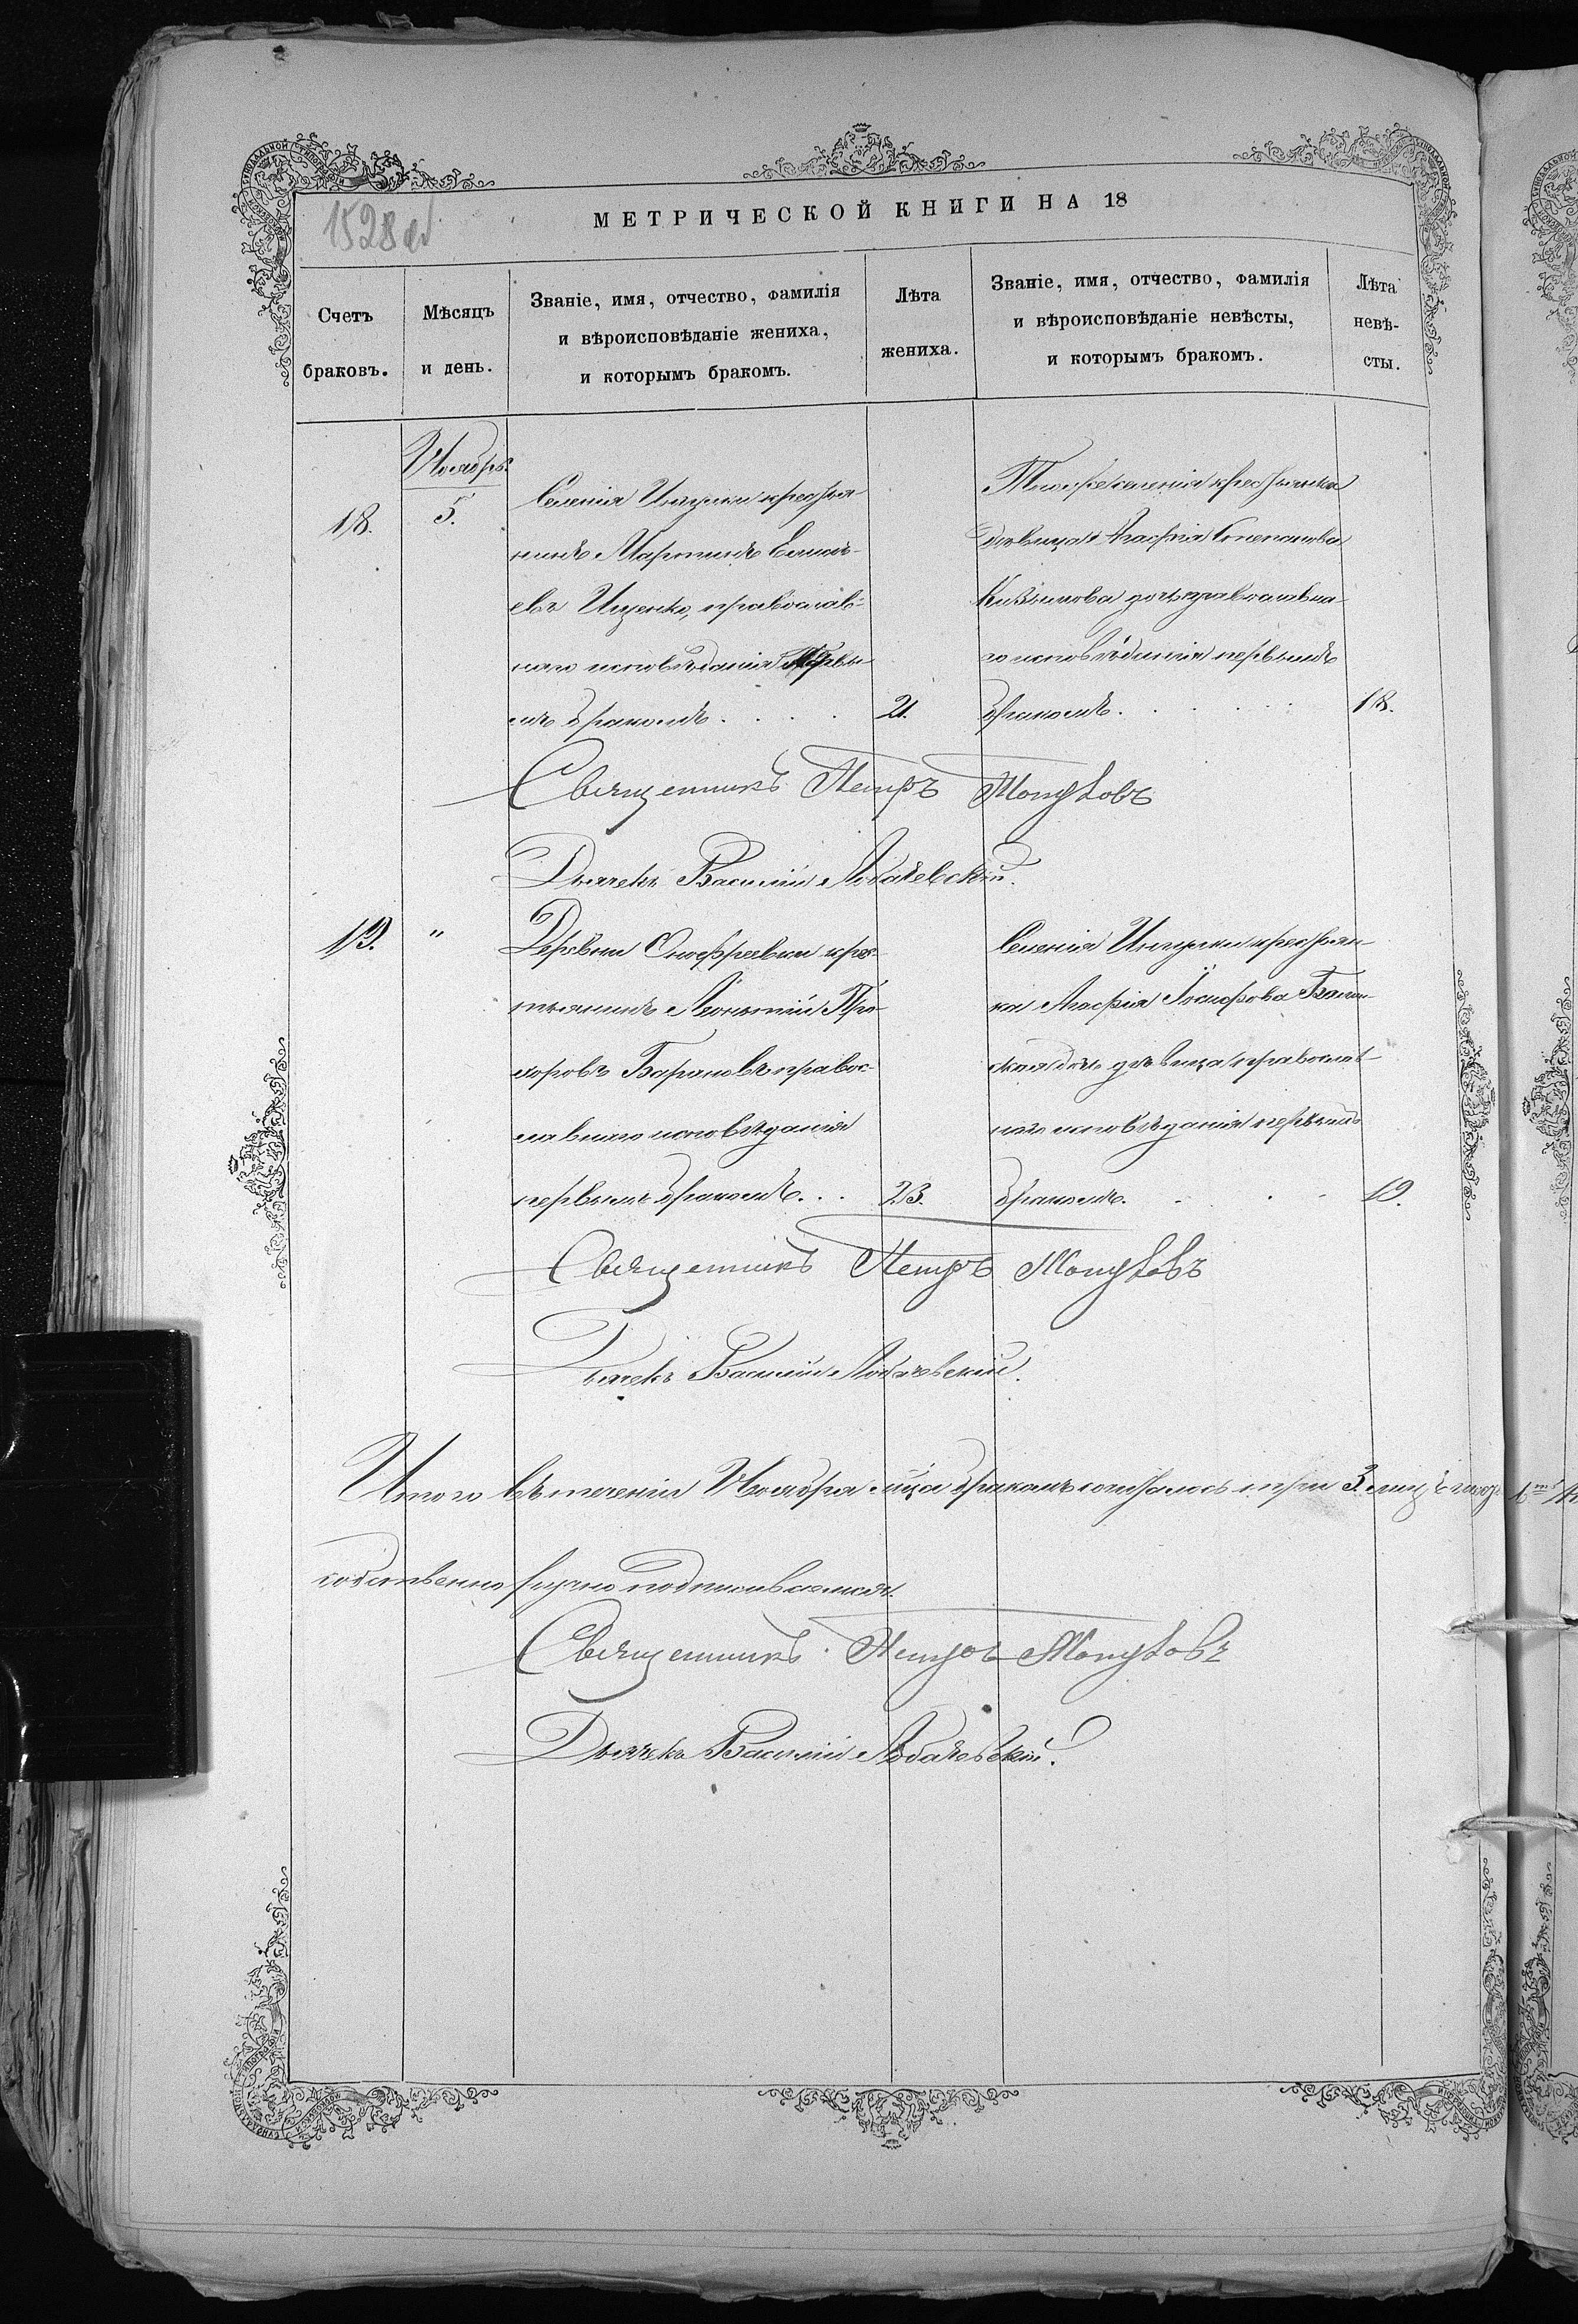 1528 об
МЕТРИЧЕСКОЙ КНИГИ НА 18
Счетъ браковъ.
Мѣсяцъ и день.
Званіе, имя, отчество, фамилія
и вѣроисповѣданіе жениха,
и которымъ бракомъ.
Лѣта жениха.
Званіе, имя, отчество, фамилія
и вѣроисповѣданіе невѣсты,
и которымъ бракомъ.
Лѣта невѣ-
сты.
Ноябрь
18.
5.
Селенія крестья
нинъ
евъ Ищенко, православ-
наго исповѣданія первы
мъ бракомъ
21.
Того же селенія крестьянка
дѣвица Агафія Степанова
дочь православна
го исповѣданія первымъ
бракомъ.
18.
Священникъ Петръ
Дьячекъ Василій Лобачевскій.
19.
"
Деревни Онофреевки крес
тьянинъ Леонтій Про
хоровъ Барановъ правос-
лавнаго исповѣданія
первымъ бракомъ.
23.
Селенія крестьян-
ка Агафія Іосифова
ская дочь дѣвица православ
наго исповѣданія первымъ
бракомъ.
19.
Священникъ Петръ
Дьячекъ Василій Лобачевскій.
Итого въ теченіи Ноября м-ца бракомъ сочеталось три 3.
собственно ручно подписываемся.
Священникъ Петръ
Дьячекъ Василій Лобачевскій.